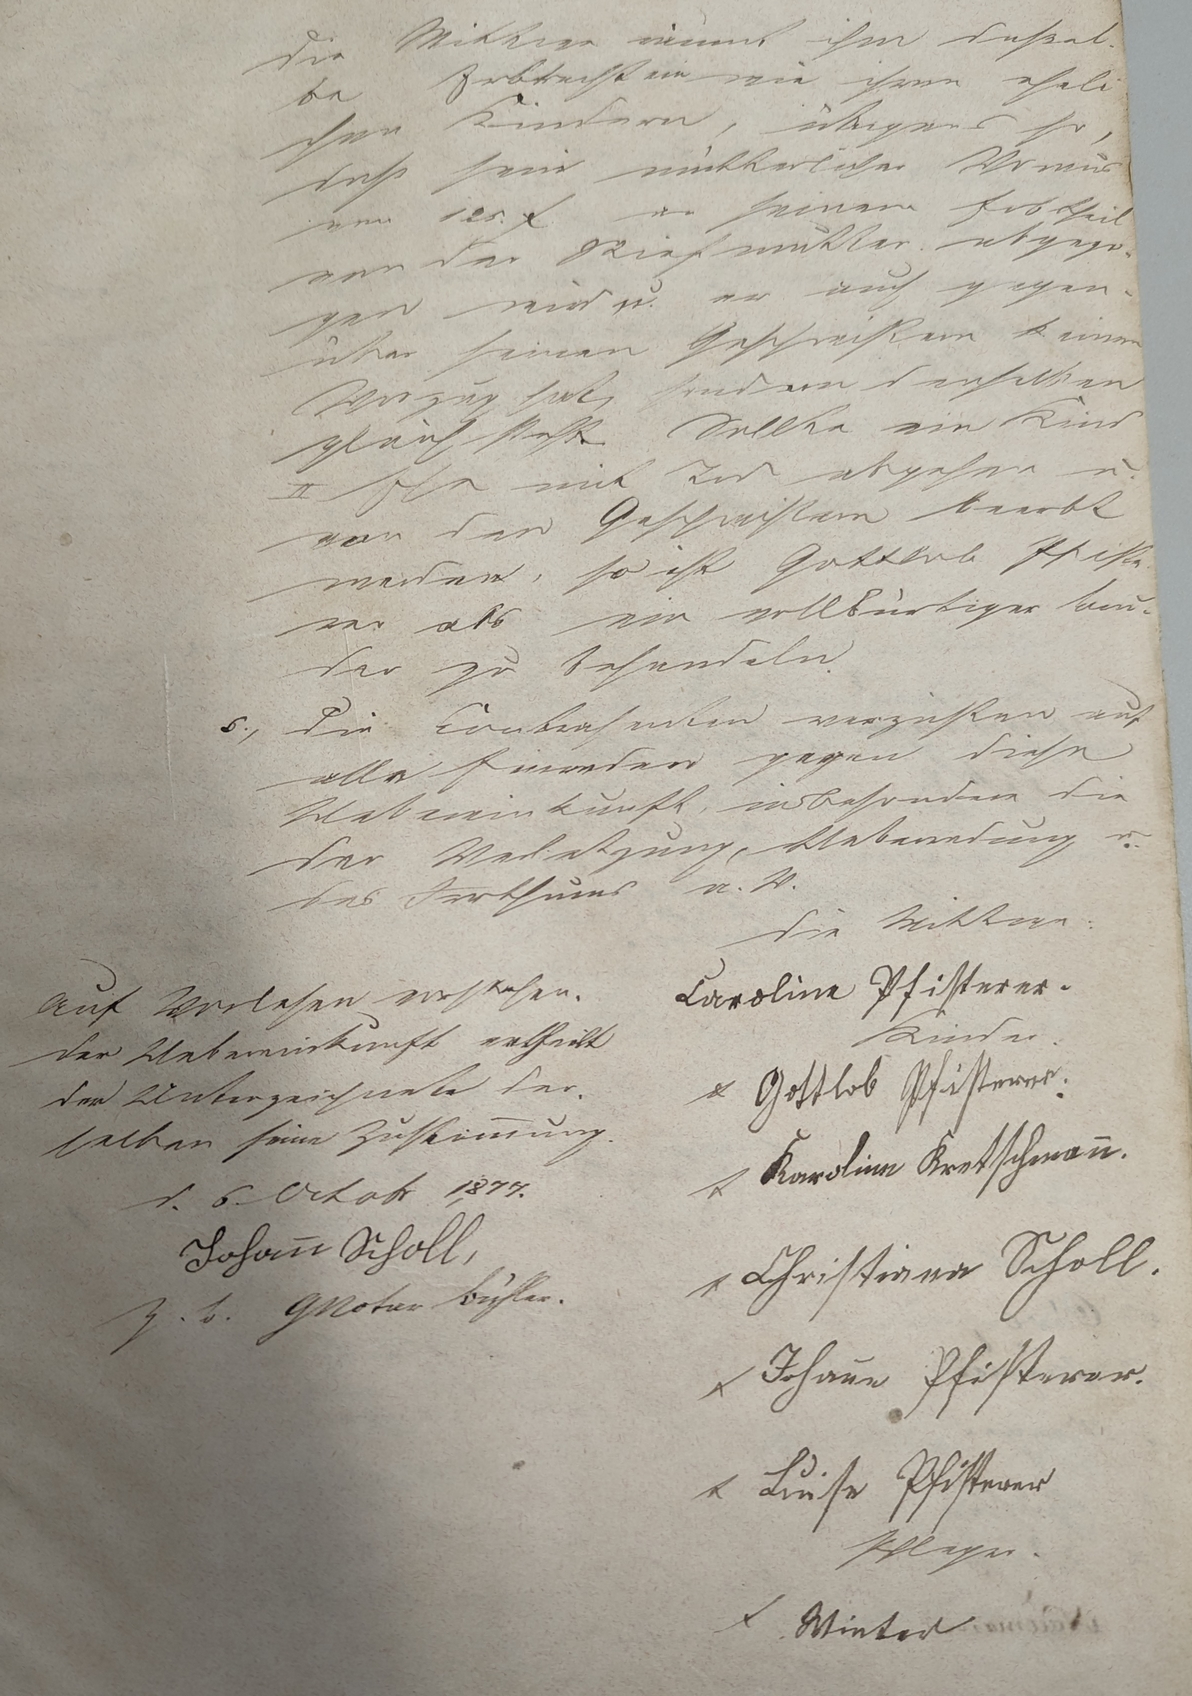 die Wittwe räumt ihm dassel-
be Erbrecht ein wie ihren eheli
chen Kindern, übrigens so,
daß sein mütterlicher Voraus
von 120. f. an seinem Erbtheil
von der Stiefmutter abgezo-
gen wird u. er auch gegen-
über seinen Geschwistern keinen
Vorzug hat, sondern denselben
gleich steht. Sollte ein Kind
II Ehe mit Tod abgehen u.
von den Geschwistern beerbt
werden, so ist Gottlob Pfiste-
rer als ein vollbürtiger Bru-
der zu behandeln.
6., Die Contrahenten verzichten auf
alle Einreden gegen diese
Uebereinkunft, insbesondere die
der Verletzung, Ueberredung u.
des Irrthums u. V.
Die Wittwe:
Caroline Pfisterer.
Kinder:
x Gottlob Pfisterer.
x Karoline Kretschmañ.
x Christiana Scholl.
x Johane Pfisterer.
x Luise Pfisterer
Pfleger.
x Winter
Auf Vorlesen vorstehen-
der Uebereinkunft ertheilt
der Unterzeichnete der-
selben seine Zustim̄ung.
d. 6 Octobr 1877.
Johañ Scholl,
z. B. GNotar Bühler.